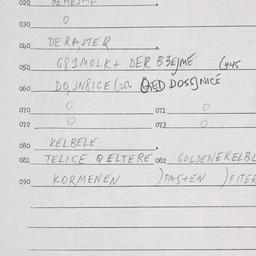 020
030 0
040 DERAJTER
050 G81MOLK+ DER B3EJME (445
060 DOJNGICE QED DOSGJNICÉ
070 0 071 0
072 0 073 0
080 KELBELE
081 TELICE QELTERE 082 GOLDENEKELBL
090 KORMENEN )PASTEN )FITER